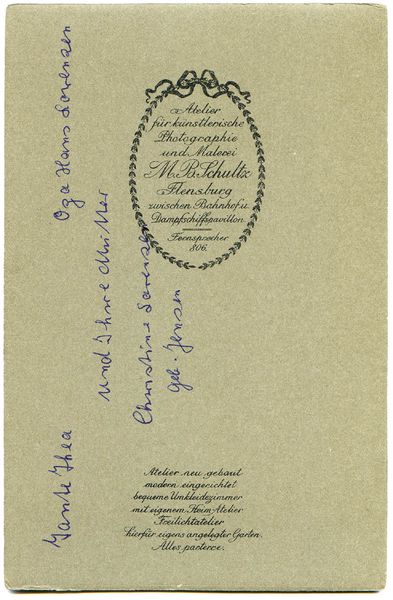 Atelier
für künstlerische
Photographie
und Malerei
M.B.Schultz
Flensburg
zwischen Bahnhof u.
Dampfschiffspavillon.
Fernsprecher
806.
Atelier neu gebaut
modern eingerichtet
bequeme Umkleidezimmer
mit eigenem Heim-Atelier
Freilichtatelier
hierfür eigens angelegter Garten.
Alles parterre.
Tante Thea Opa Hans Lorenzen
und Ihre Mutter
Christine Lorenzen
geb. Jensen